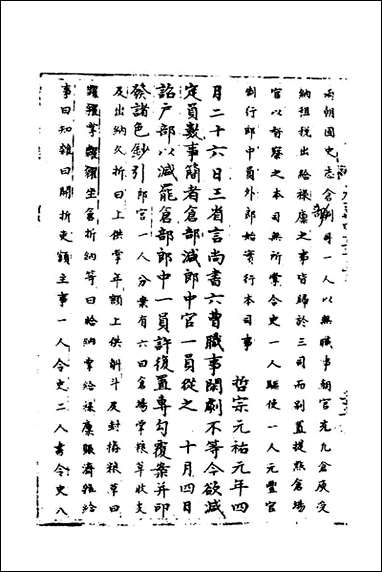 兩朝國史志倉部判司一人以無職事朝官充凡倉庾受
納租稅出給祿廩之事皆歸於三司而別置提點倉場
官以督察之本司無所掌令史一人驅使一人元豐官
制行郎中員外郎始實行本司事
哲宗元祐元年四
月二十六日三省言尚書六曹職事閑劇不等今欲減
定員數事簡者倉部減郎中官一員從之 十月四日
詔戶部以減罷倉部郎中一員許復置專勾覆案并印
發諸色鈔引郎官一人分案有六曰倉場掌糧草收支
及出納欠折曰上供掌年額上供斛斗及封樁糧草曰
糶糴掌糶糴坐倉折納等曰給納掌給祿廩賑濟雜給
事曰知雜曰開折吏額主事一人令史二人書令史八